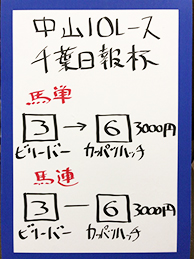 中山10レース
千葉日報杯
馬単
3 → 6 3000円
ビリーバー カッパツハッチ
馬連
3 — 6 3000円
ビリーバー カッパツハッチ